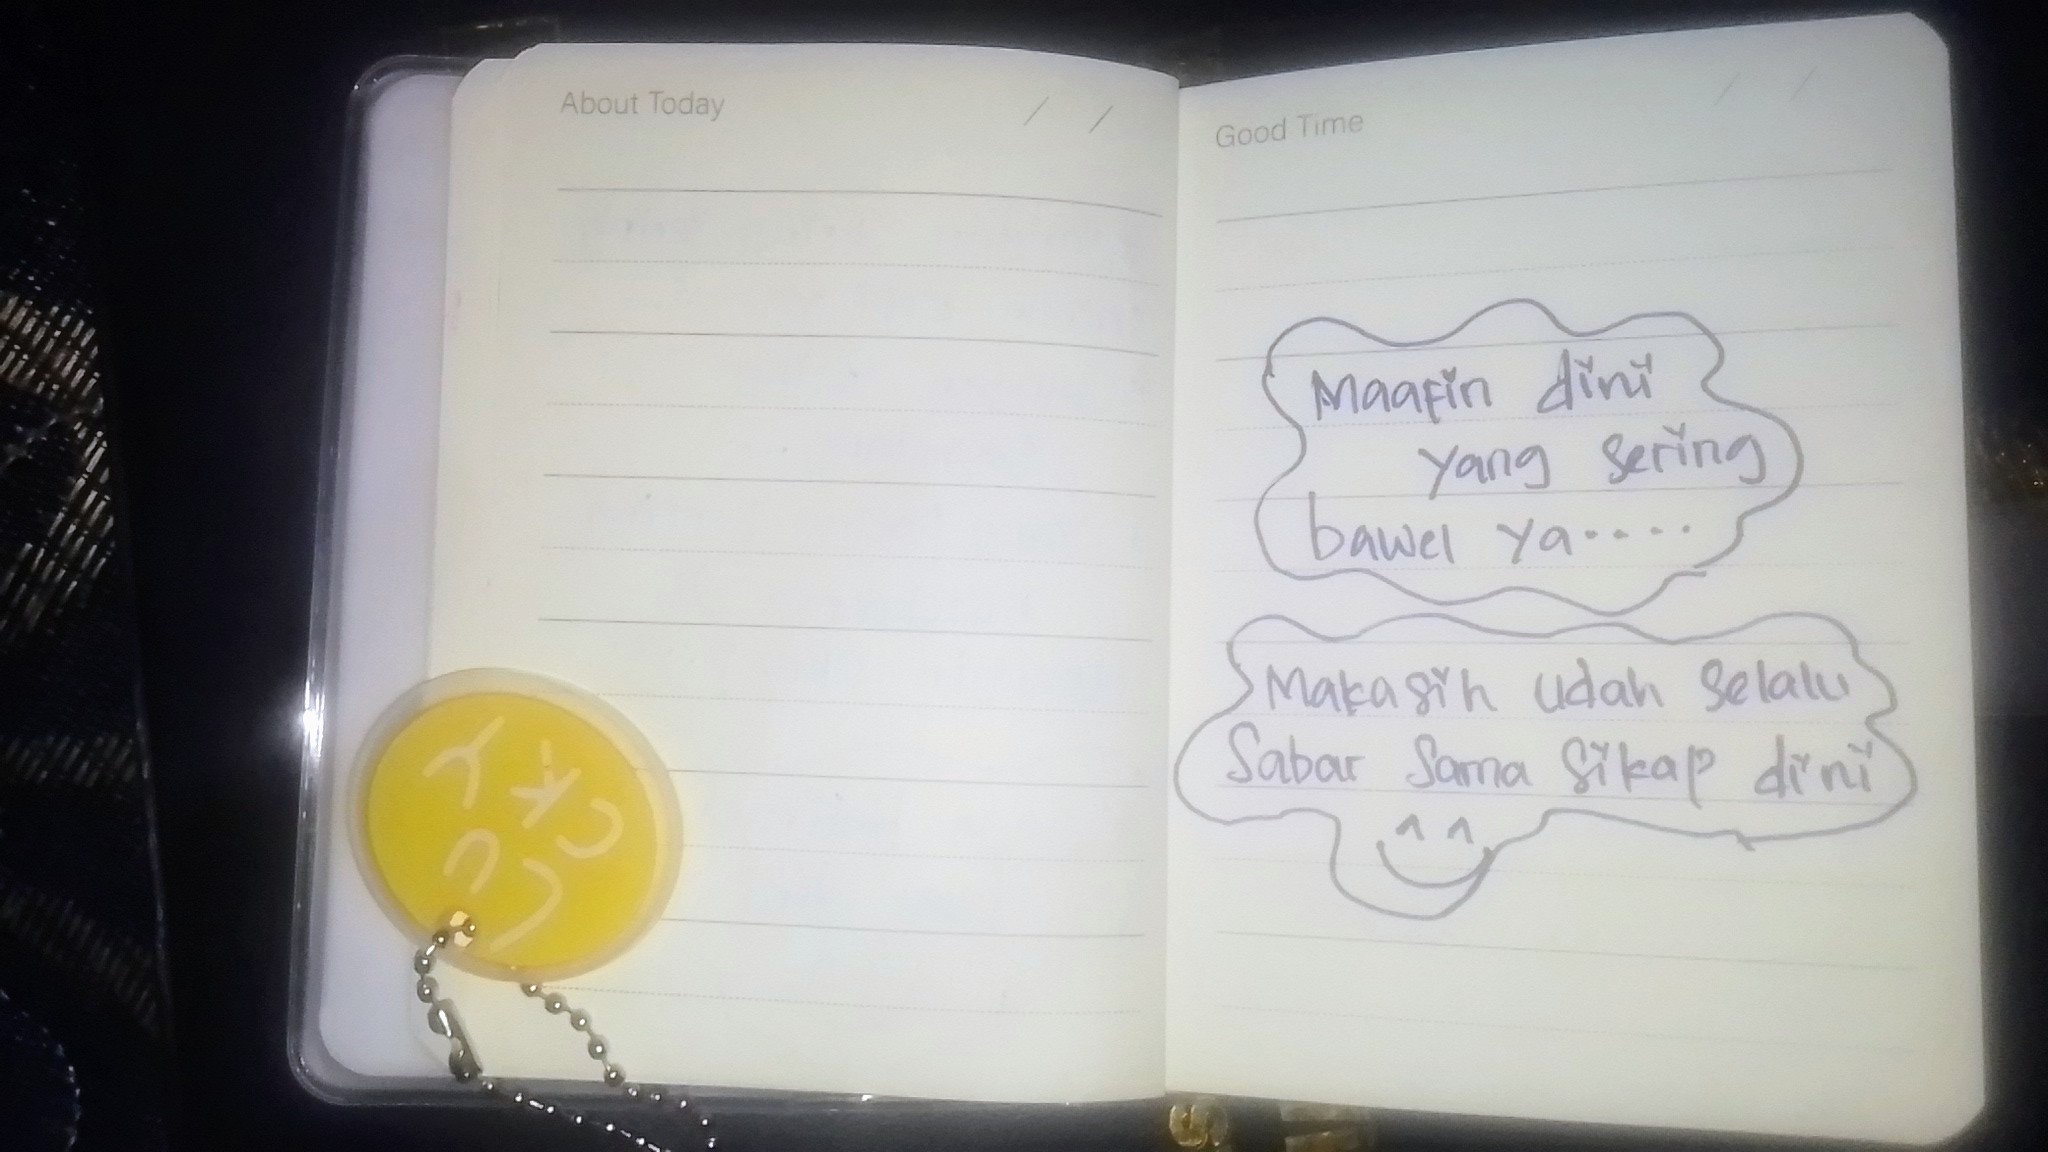 About Today / /
Good Time / /
Maafin dini
yang sering
bawel ya.....
Makasih udah selalu
Sabar Sama Sikap dini
LUCKY